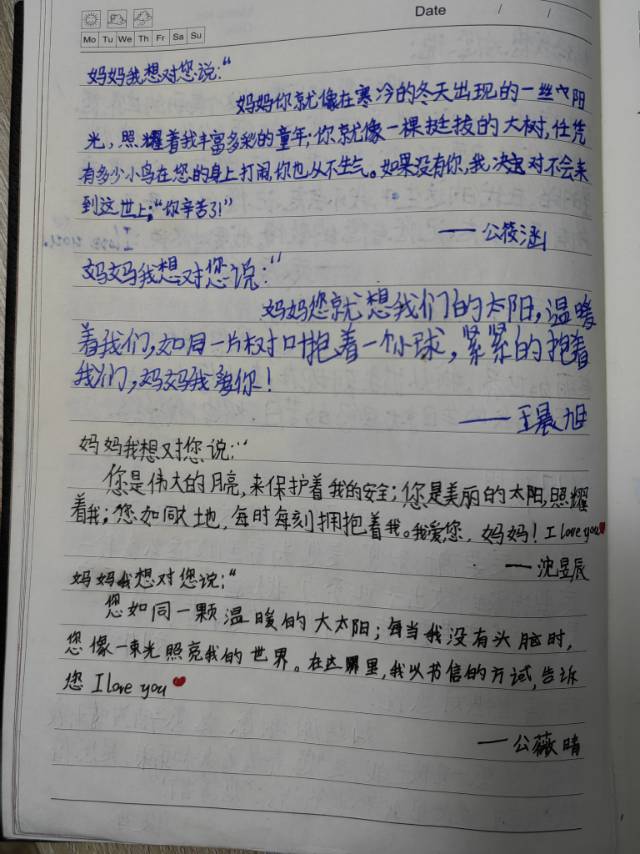 Date / /
Mo Tu We Th Fr Sa Su
妈妈我想对您说:“
妈妈你就像在寒冷的冬天出现的一丝阳
光，照耀着我丰富多彩的童年;你就像一棵挺拔的大树,任凭
有多少小鸟在您的身上打闹,你也从不生气。如果没有你,我决对不会来
到这世上;“你辛苦了!”
——公筱涵
妈妈我想对您说:“
妈妈您就想我们的太阳,温暖
着我们,如同一片树叶抱着一个小球，紧紧的抱着
我们,妈妈我爱你!
——王晨旭
妈妈我想对您说:“
您是伟大的月亮,来保护着我的安全;您是美丽的太阳,照耀
着我;您如同大地,每时每刻拥抱着我。我爱您,妈妈! I love you
——沈昱辰
妈妈我想对您说:“
您如同一颗温暖的大太阳;每当我没有头脑时,
您像一束光照亮我的世界。在这里,我以书信的方试,告诉
您 I love you
——公薇晴